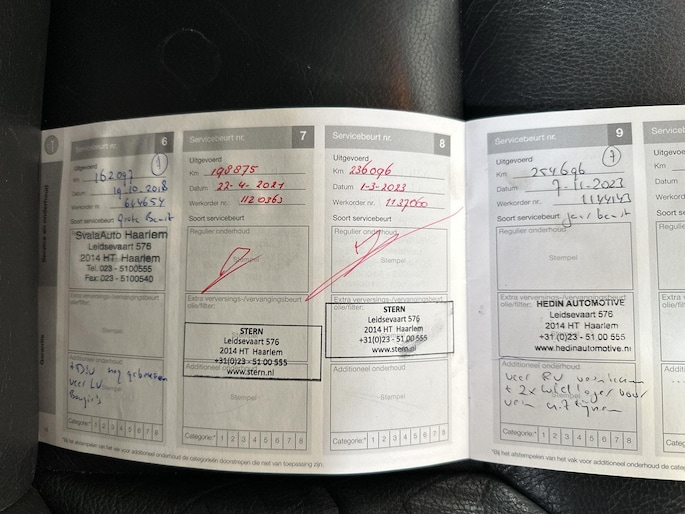 Service en onderhoud
Garantie
Servicebeurt nr. 6
Uitgevoerd
Km 162047
Datum 19-10-2018
Werkorder nr. 614654
Soort servicebeurt Grote Beurt
SvalaAuto Haarlem
Leidsevaart 576
2014 HT Haarlem
Tel. 023 - 5100555
Fax: 023 - 5100540
Extra verversings-/vervangingsbeurt
olie/filter:
Stempel
Additioneel onderhoud
+ DSV nog
veer LV
Categorie:* 1 2 3 4 5 6 7 8
Servicebeurt nr. 7
Uitgevoerd
Km 198875
Datum 22-4-2021
Werkorder nr. 1120363
Soort servicebeurt
Regulier onderhoud
Stempel
Extra verversings-/vervangingsbeurt
olie/filter:
STERN
Leidsevaart 576
2014 HT Haarlem
+31(0)23 - 51 00 555
www.stern.nl
Additioneel onderhoud
Stempel
Categorie:* 1 2 3 4 5 6 7 8
Servicebeurt nr. 8
Uitgevoerd
Km 236096
Datum 1-3-2023
Werkorder nr. 1137060
Soort servicebeurt
Regulier onderhoud
Stempel
Extra verversings-/vervangingsbeurt
olie/filter:
STERN
Leidsevaart 576
2014 HT Haarlem
+31(0)23 - 51 00 555
www.stern.nl
Additioneel onderhoud
Stempel
Categorie:* 1 2 3 4 5 6 7 8
*Bij het afstempelen van het vak voor additioneel onderhoud de categorieën doorstrepen die niet van toepassing zijn.
Servicebeurt nr. 9
Uitgevoerd
Km 254696
Datum 7-11-2023
Werkorder nr. 1144143
Soort servicebeurt jaar beurt
Regulier onderhoud
Stempel
Extra verversings-/vervangingsbeurt
olie/filter:
HEDIN AUTOMOTIVE
Leidsevaart 576
2014 HT Haarlem
+31(0)23 - 51 00 555
www.hedinautomotive.nl
Additioneel onderhoud
veer RV
+ 2x wiellager voor
Stempel
Categorie:* 1 2 3 4 5 6 7 8
*Bij het afstempelen van het vak voor additioneel onderhoud de
Servicebeurt
Uitgevoerd
Km
Datum
Werkorder
Soort
Regulier
Extra
olie/filter
Additioneel
Categorie